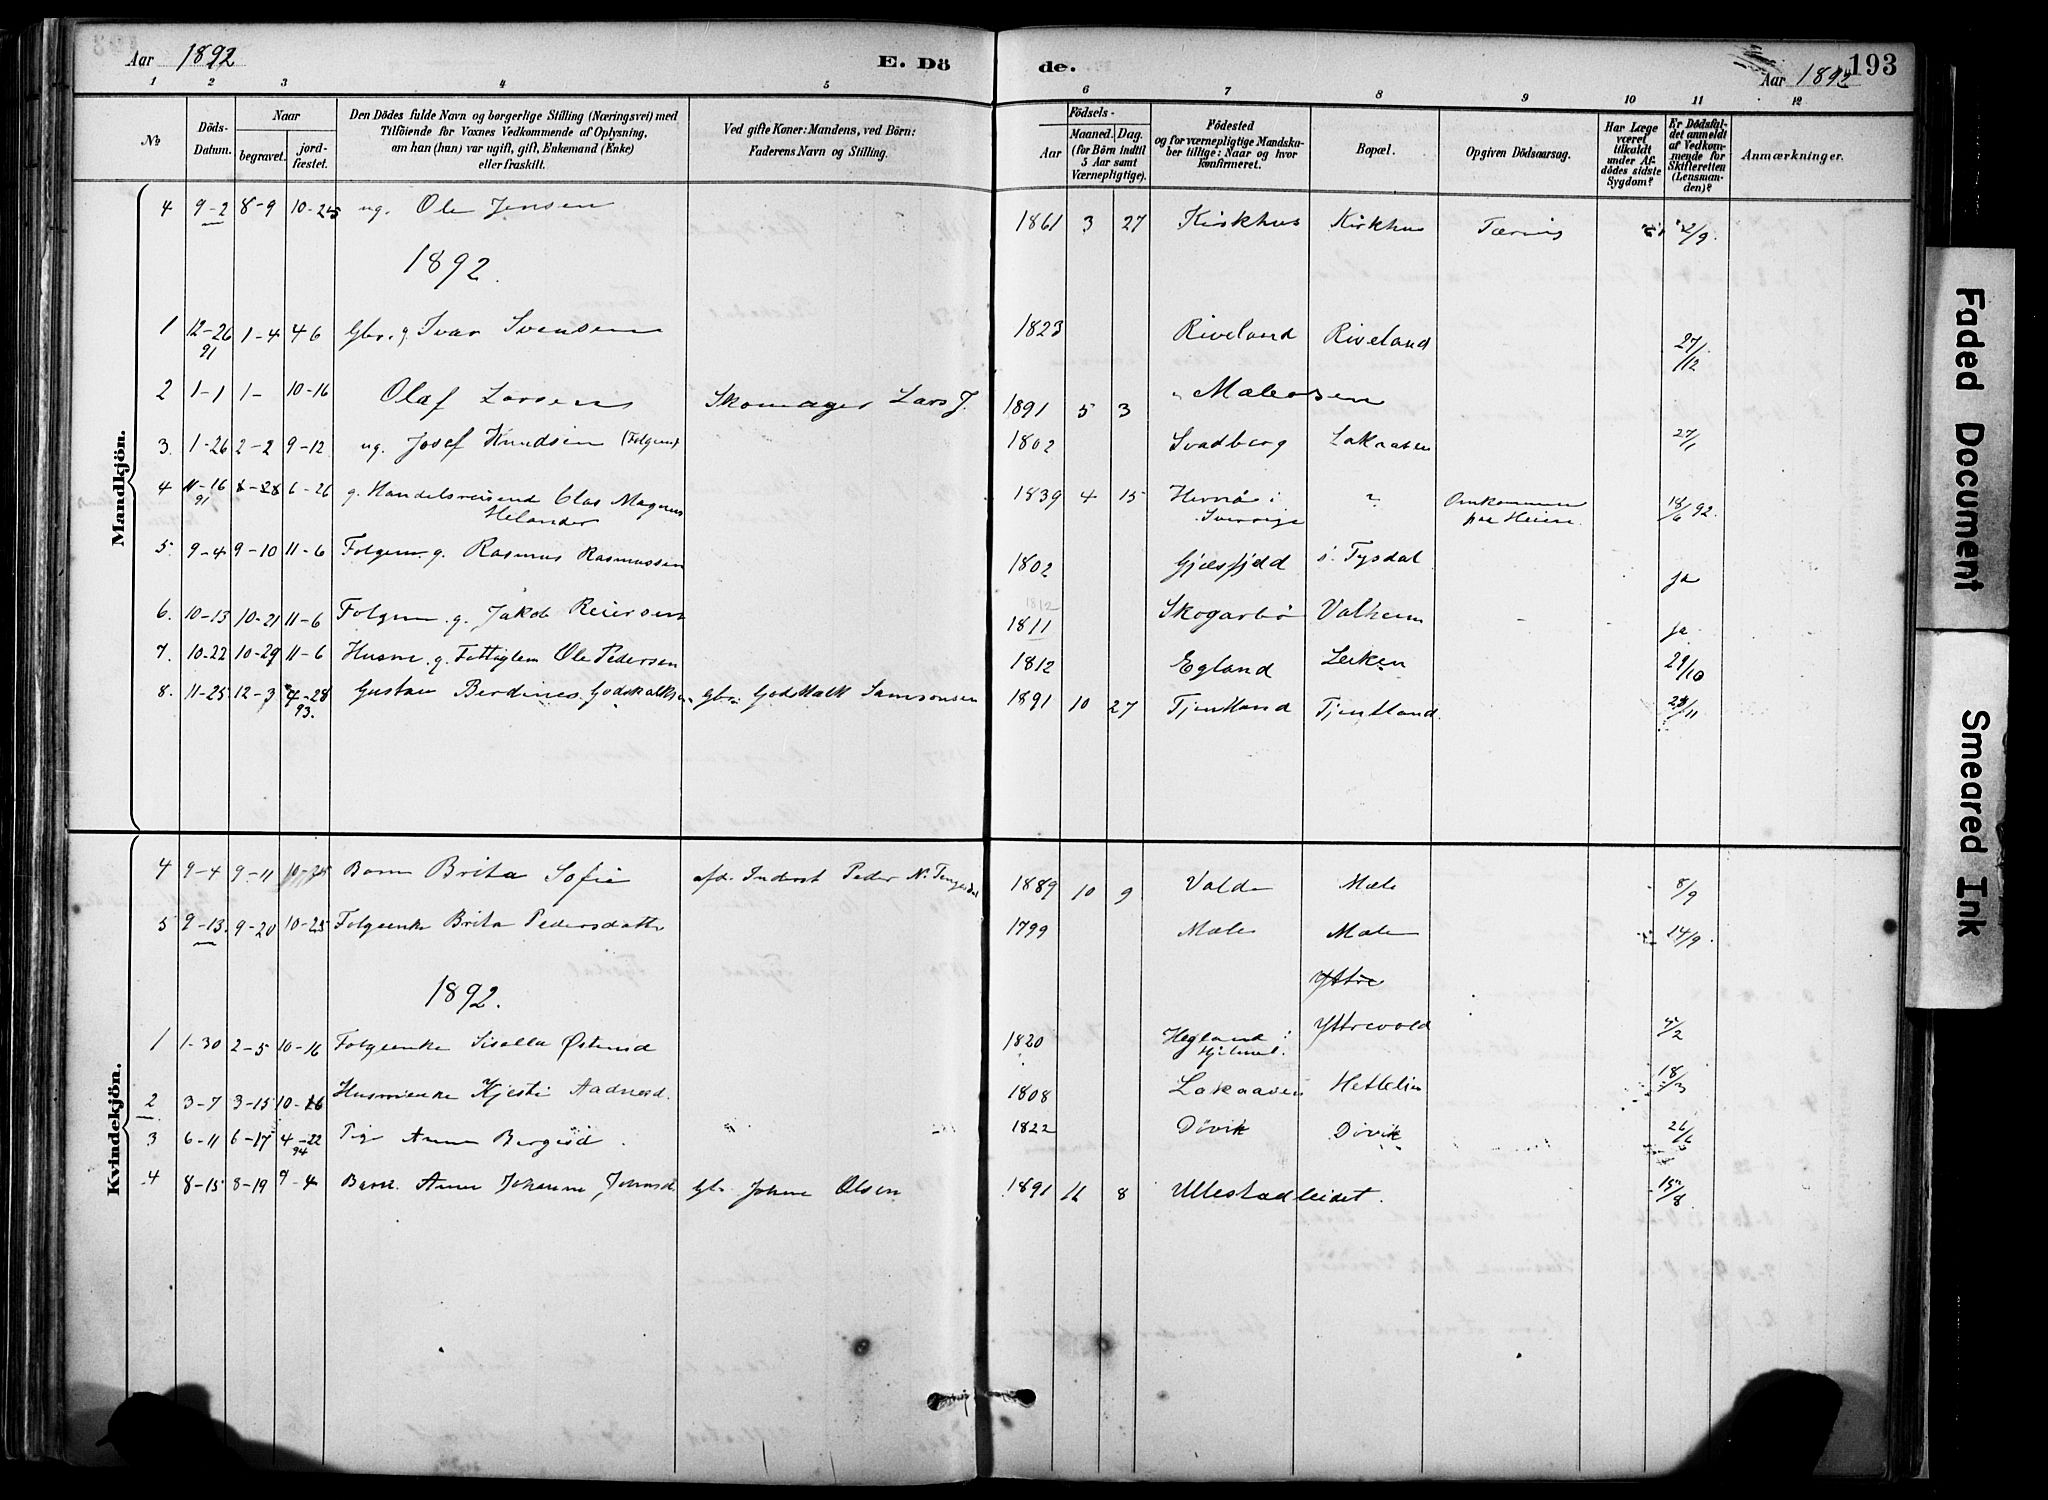 Aar 1892
E. Dö
de.
193
Aar 1892
1 2 3 4 5 6 7 8 9 10 11 12
No
Döds-Datum.
Naar
begravet.
jord-fæstet.
Den Dödes fulde Navn og borgerlige Stilling (Næringsvei) med
Tilföiende for Voxnes Vedkommende af Oplysning,
om han (han) var ugift, gift, Enkemand (Enke)
eller fraskilt.
Ved gifte Koner: Mandens, ved Börn:
Faderens Navn og Stilling.
Födsels-
Aar
Maaned. Dag.
(for Börn indtil
5 Aar samt
Værnepligtige).
Födested
og for værnepligtige Mandska-
ber tillige: Naar og hvor
konfirmeret.
Bopæl.
Opgiven Dödsaarsag.
Har Læge
været
tilkaldt
under Af-
dödes sidste
Sygdom?
Er Dödsfal-
det anmeldt
af Vedkom-
mende for
Skifteretten
(Lensman-
den)?
Anmærkninger.
Mandkjön.
4 9-2 8-9 10-25 ug. Ole Jensen 1861 3 27 Kirkhus Kirkhus Tæring 2/9.
1892.
1 12-26 91 1-4 4-6 Gbr. g. Ivar Svensen 1823 Riveland Riveland 27/12
2 1-1 1- 10-16 Olaf Larsen Skomager Lars J. 1891 5 3 Mæleosen
3. 1-26 2-2 9-12 ug. Josef Knudsen (Folgem) 1802 Svadberg Lakaaven 27/1
4 11-16 91 6-26 g. Handelsreisend Clas Magnus Helander 1839 4 15 Hernø i Sverrige ? Omkommen paa Heien. 18/6 92.
5. 9-4 9-10 11-6 Folgem. g. Rasmus Rasmussen 1802 Gjæsfjeld i. Tysdal ja
6. 10-13 10-21 11-6 Folgem. g. Jakob Reiersen 1812 1811 Skogarbø Valheim ja
7. 10-22 10-29 11-6 Husm. g. Fattiglem Ole Pedersen 1812 Egland Leken 29/10
8. 11-25 12-3 4-28 93. Gustav Berdines Godskalksen Gbr. Godskalk Samsonsen 1891 10 27 Tjentland Tjentland 29/11
Kvindekjön.
4 9-4 9-11 10-25 Barn Brita Sofie afd. Inderst Peder N. 1889 10 9 Valde Mæle 8/9
5 9-13. 9-20 10-25 Folgeenke Brita Pedersdatter 1799 Mæle Mæle 14/9.
1892. Yttre
1 1-30 2-5 10-16 Folgeenke Sisella Østensd 1820 Hegland i Hjelmel. Yttrevold 4/2
2 3-7 3-15 10-16 Husm.enke Kjersti Aadnesd. 1808 Lakaaven Hettelin 18/3
3 6-11 6-17 4-22 94 Pige Anna Bergisd 1822 Døvik Døvik 26/6
4 8-15 8-19 9-4 Barn. Anna Johanna Johnsd. Gb. Johne Olsen 1891 11 8 Ullestadleidet. 15/8
Faded Document
Smeared Ink